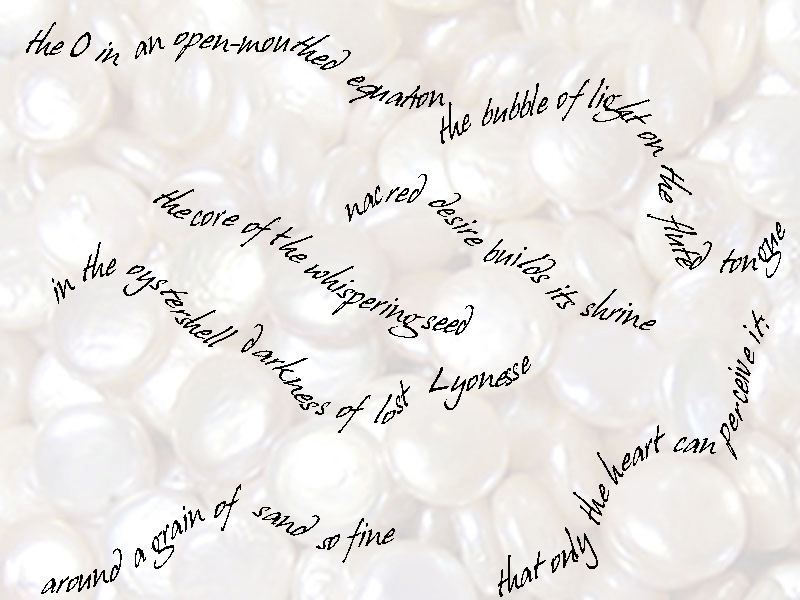 the O in an open-mouthed equation
the bubble of light on the fluted tongue
the core of the whispering seed
in the oystershell darkness of lost Lyonesse
nacred desire builds its shrine
around a grain of sand so fine
that only the heart can perceive it.